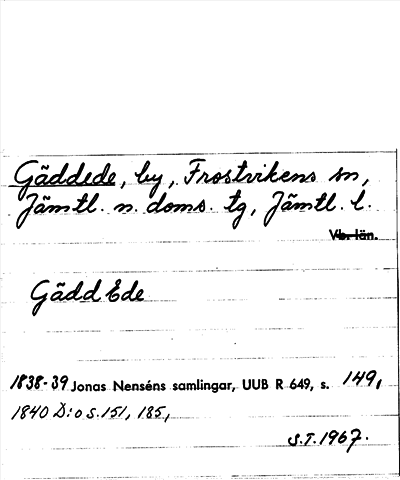 Gäddede, by, Frostvikens sn,
Jämtl. n. doms. tg, Jämtl. l.
Vb. län.
Gädd Ede
1838-39 Jonas Nenséns samlingar, UUB R 649, s. 149,
1840 D:o s. 151, 185,
S.T. 1967.